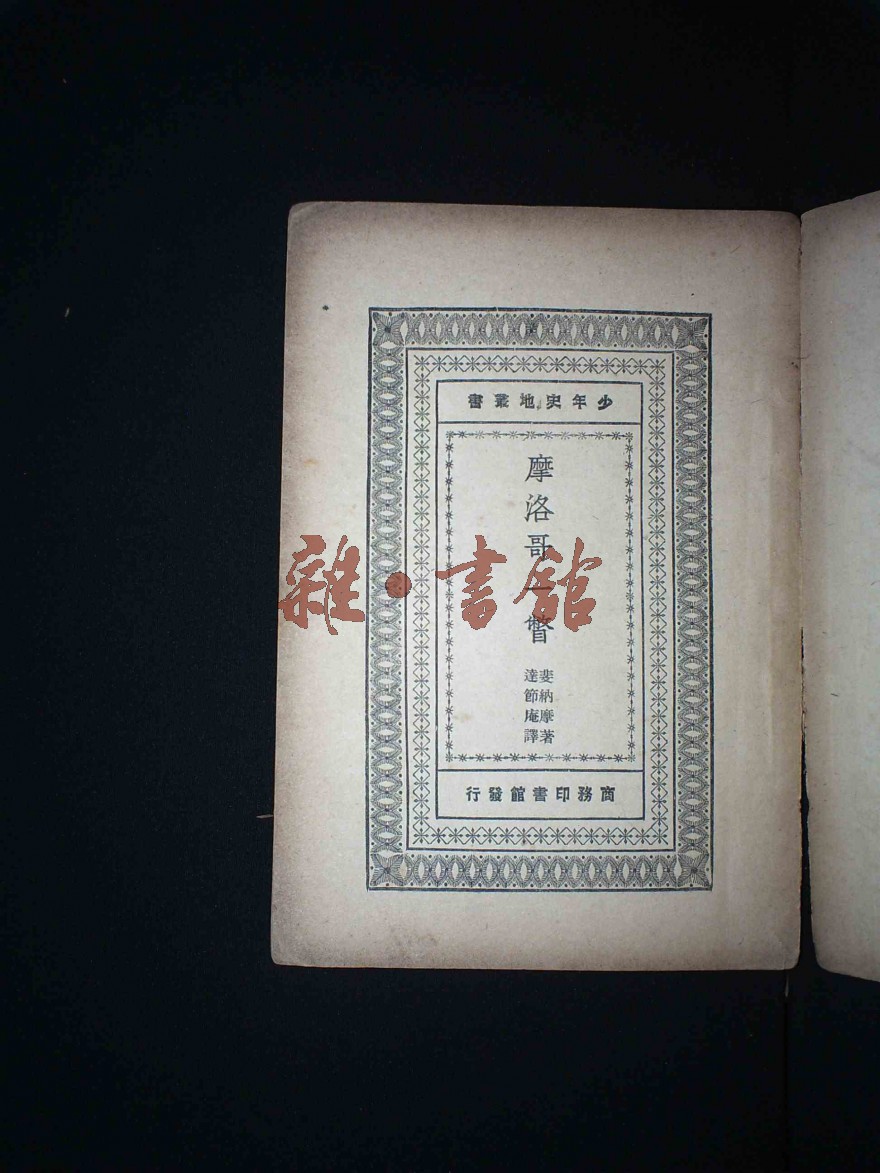 少年史地叢書
摩洛哥一瞥
斐納摩著
達節庵譯
商務印書館發行
雜·書館